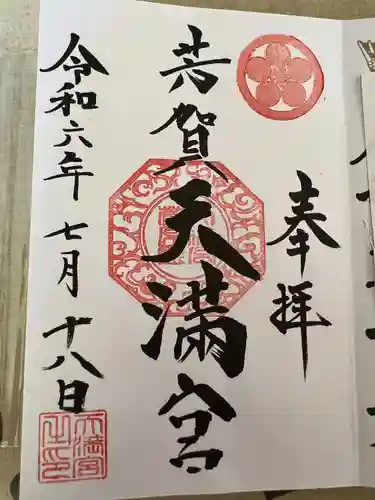 奉拝
芳賀天満宮
令和六年七月十八日